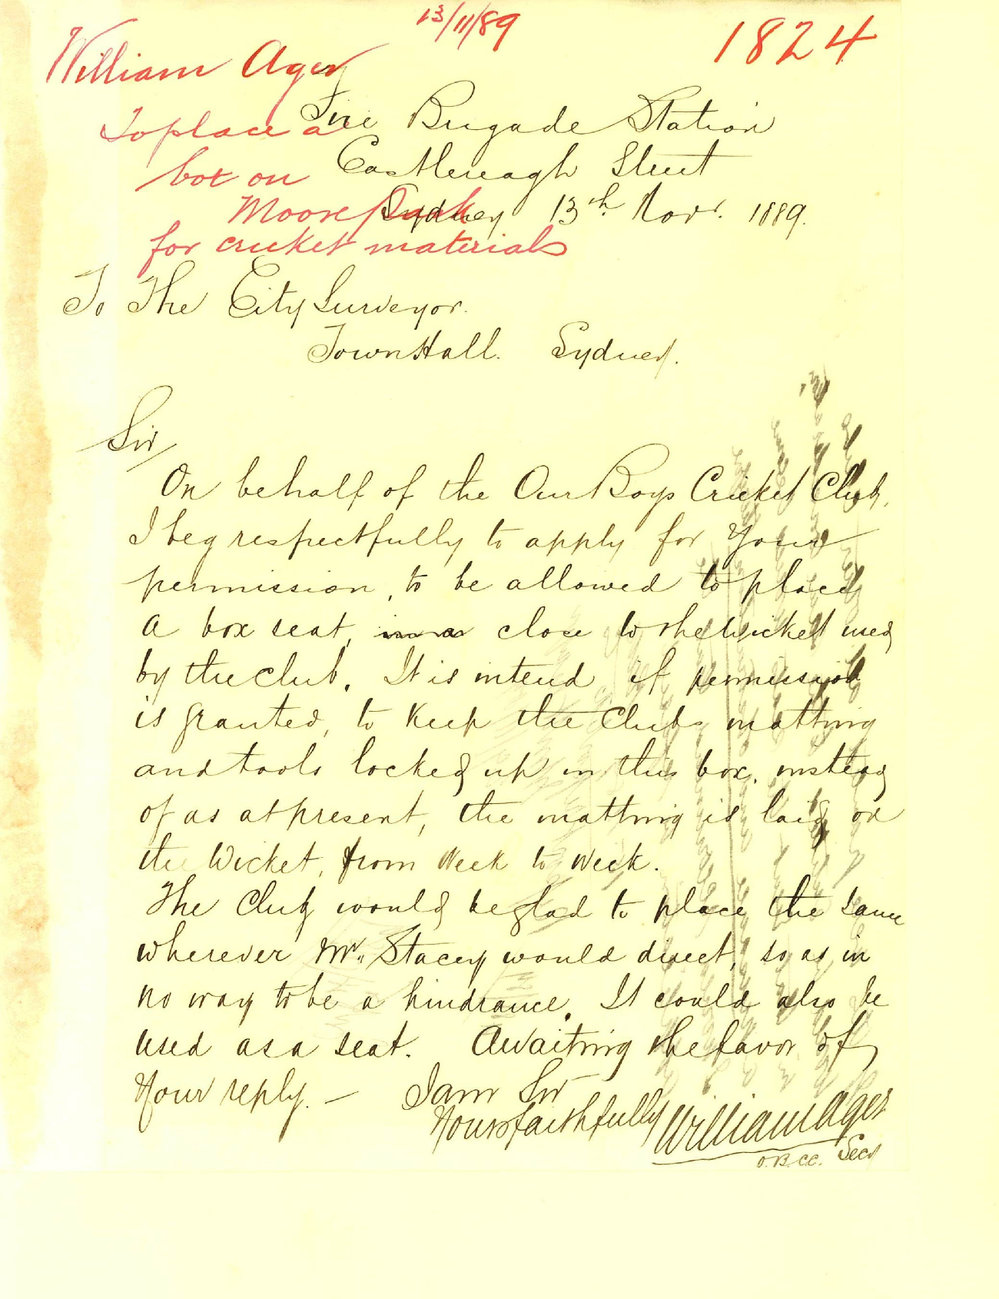 13/11/89
1824
William Ager
To place a
box on
Moore Park
for cricket materials
Fire Brigade Station
Castlereagh Street
Sydney 13th Novr. 1889.
To The City Surveyor.
Town Hall. Sydney.
Sir,
On behalf of the Our Boys Cricket Club,
I beg respectfully to apply for Your
permission, to be allowed to place
a box seat, close to the wicket used
by the club. It is intend if permission
is granted, to keep the Clubs matting
and tools locked up in this box, instead
of as at present, the matting is laid on
the Wicket, from Week to Week.
The Club would be glad to place the same
wherever Mr. Stacey would direct, so as in
no way to be a hindrance. It could also be
used as a seat. Awaiting the favor of
Your reply. — I am Sir
Yours faithfully William Ager
O.B.CC. Secy